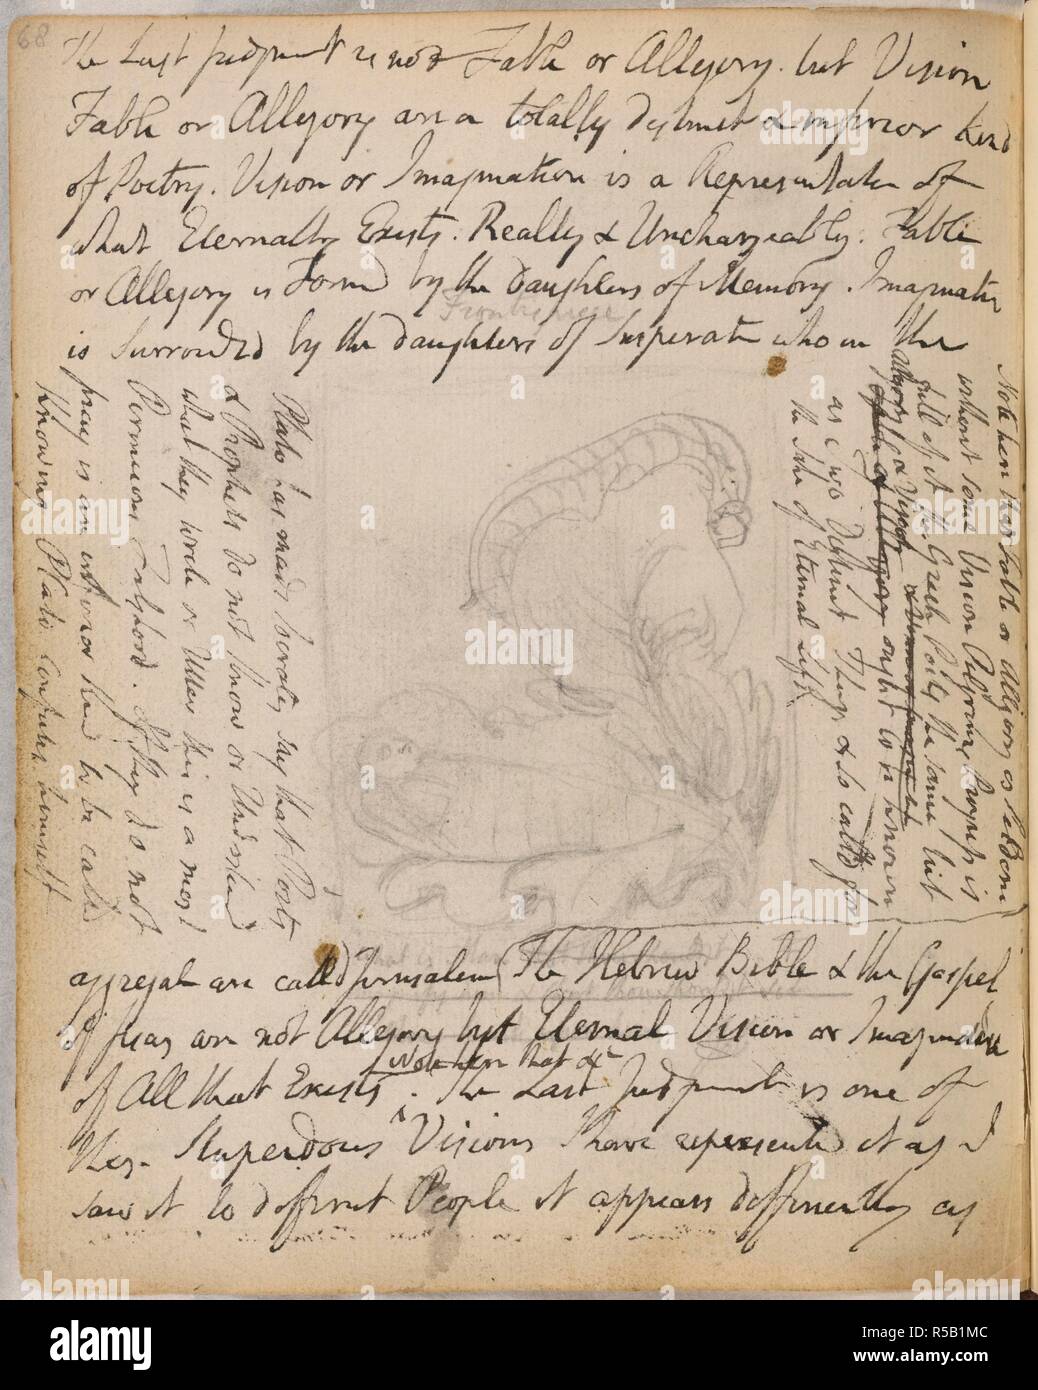 68
The Last Judgment is not Fable or Allegory but Vision
Fable or Allegory are a totally distinct & inferior kind
of Poetry. Vision or Imagination is a Representation of
what Eternally Exists. Really & Unchangeably. Fable
or Allegory is Formd by the Daughters of Memory. Imagination
is Surrounded by the daughters of Inspiration who in the
Frontispiece
aggregate are calld Jerusalem
Note here that Fable or Allegory is Seldom
without some Vision Pilgrims Progress is
full of it the Greek Poets the same but
Allegory & Vision
ought to be known
as Two Distinct Things & so calld for
the Sake of Eternal Life
Plato has made Socrates say that Poets
& Prophets do not Know or Understand
what they write or Utter this is a most
Pernicious Falshood. If they do not
pray is an inferior Kind to be calld
Knowing Plato confutes himself
The Hebrew Bible & the Gospel
of Jesus are not Allegory but Eternal Vision or Imagination
of All that Exists
Note here that &c
The Last Judgment is one of
these Stupendous Visions I have represented it as I
saw it to different People it appears differently as
alamy
alamy stock photo
R5B1MC
www.alamy.com